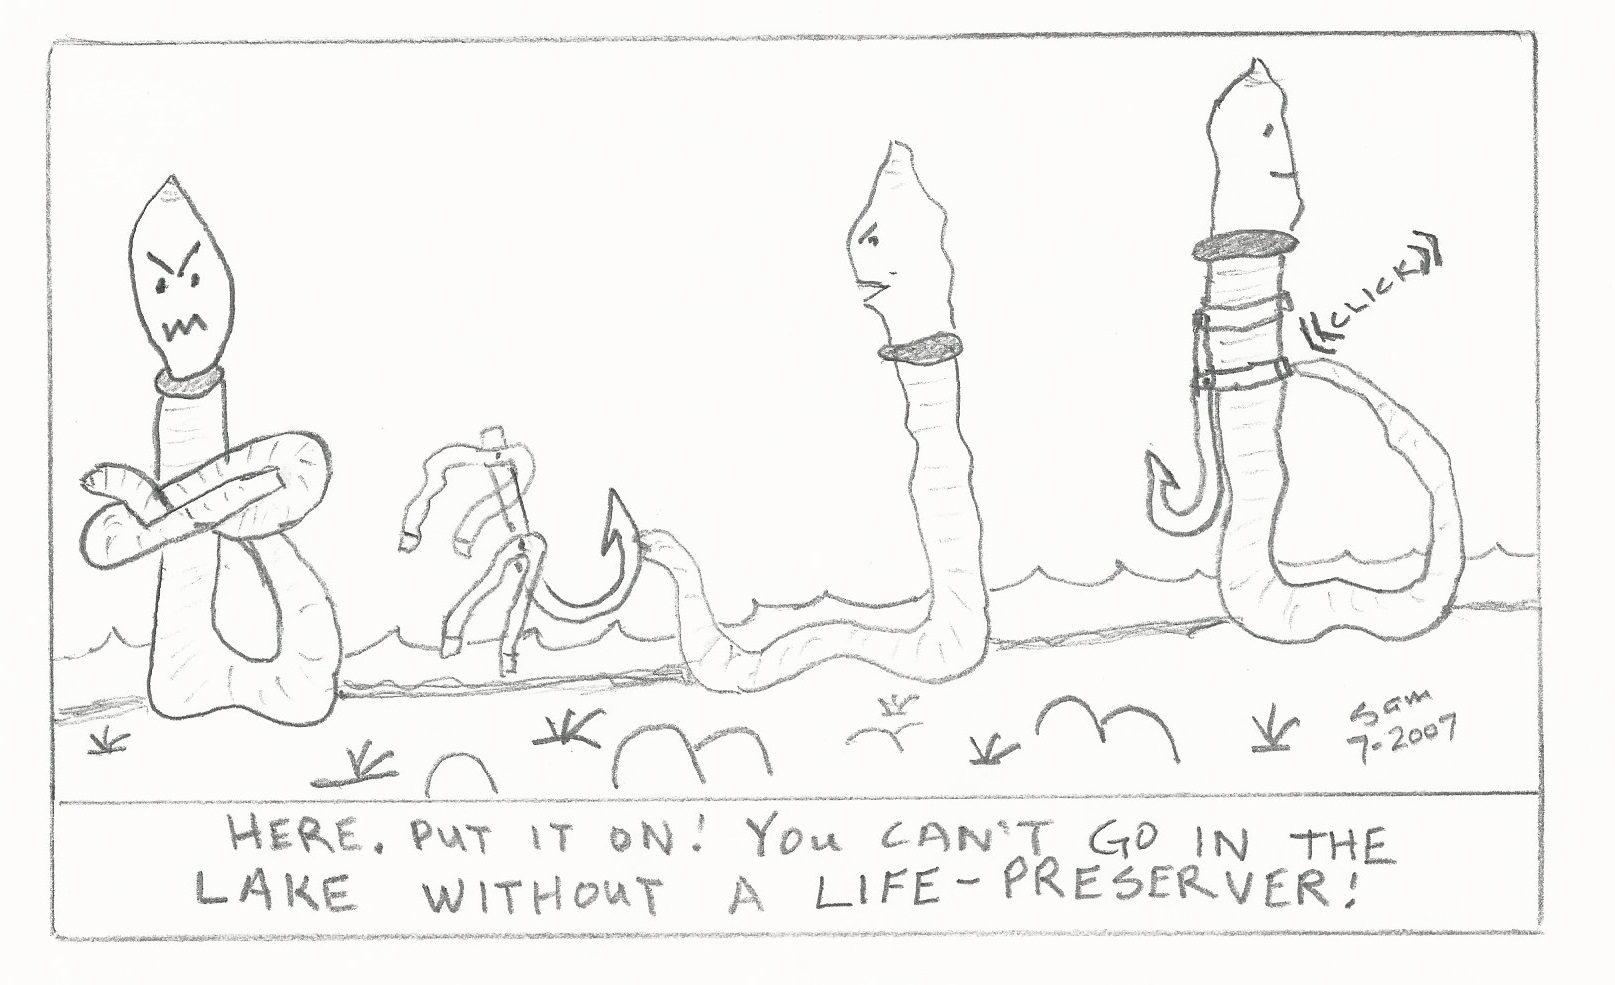 CLICK
Sam
7-2007
HERE. PUT IT ON! YOU CAN'T GO IN THE
LAKE WITHOUT A LIFE-PRESERVER!